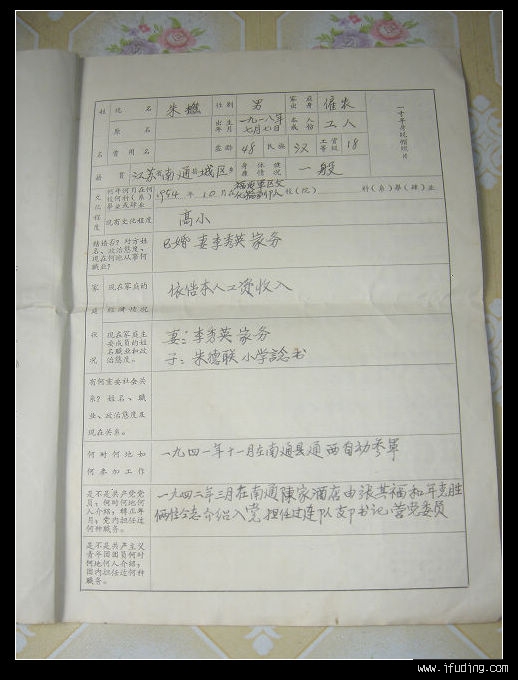 姓 现名 朱 性别 男 家庭出身 雇农 一寸半身脱帽照片
原名 出生年月 一九一八年七月七日 本人成份 工人
名 曾用名 年龄 48 民族 汉 工资等级 18
籍贯 江苏省南通县城区乡 身体健康情况 一般
文化程度 何年何月在何校何科(系)毕业或肄业 1954年10月在 校(院) 科(系)毕(肄)业
现有文化程度 高小
结婚否?对方姓名、政治态度、现在何地从事何职业? 已婚 妻李秀英 家务
家庭状况 现在家庭的经济情况 依借本人工资收入
现在家庭主要成员的姓名职业和政治态度。 妻:李秀英 家务
子:朱德联 小学读书
有何重要社会关系?姓名、职业、政治态度及现在关系。
何时何地如何参加工作 一九四一年十一月在南通县通西自动参军
是不是共产党党员;何时何地何人介绍;转正年月;党内担任过何种职务。 一九四二年三月在南通陳家酒店由張其福和年克胜
俩位同志介绍入党.担任过连队支部书记.营党委员
是不是共产主义青年团团员何时何地何人介绍;团内担任过何种职务。
www.ifuding.com